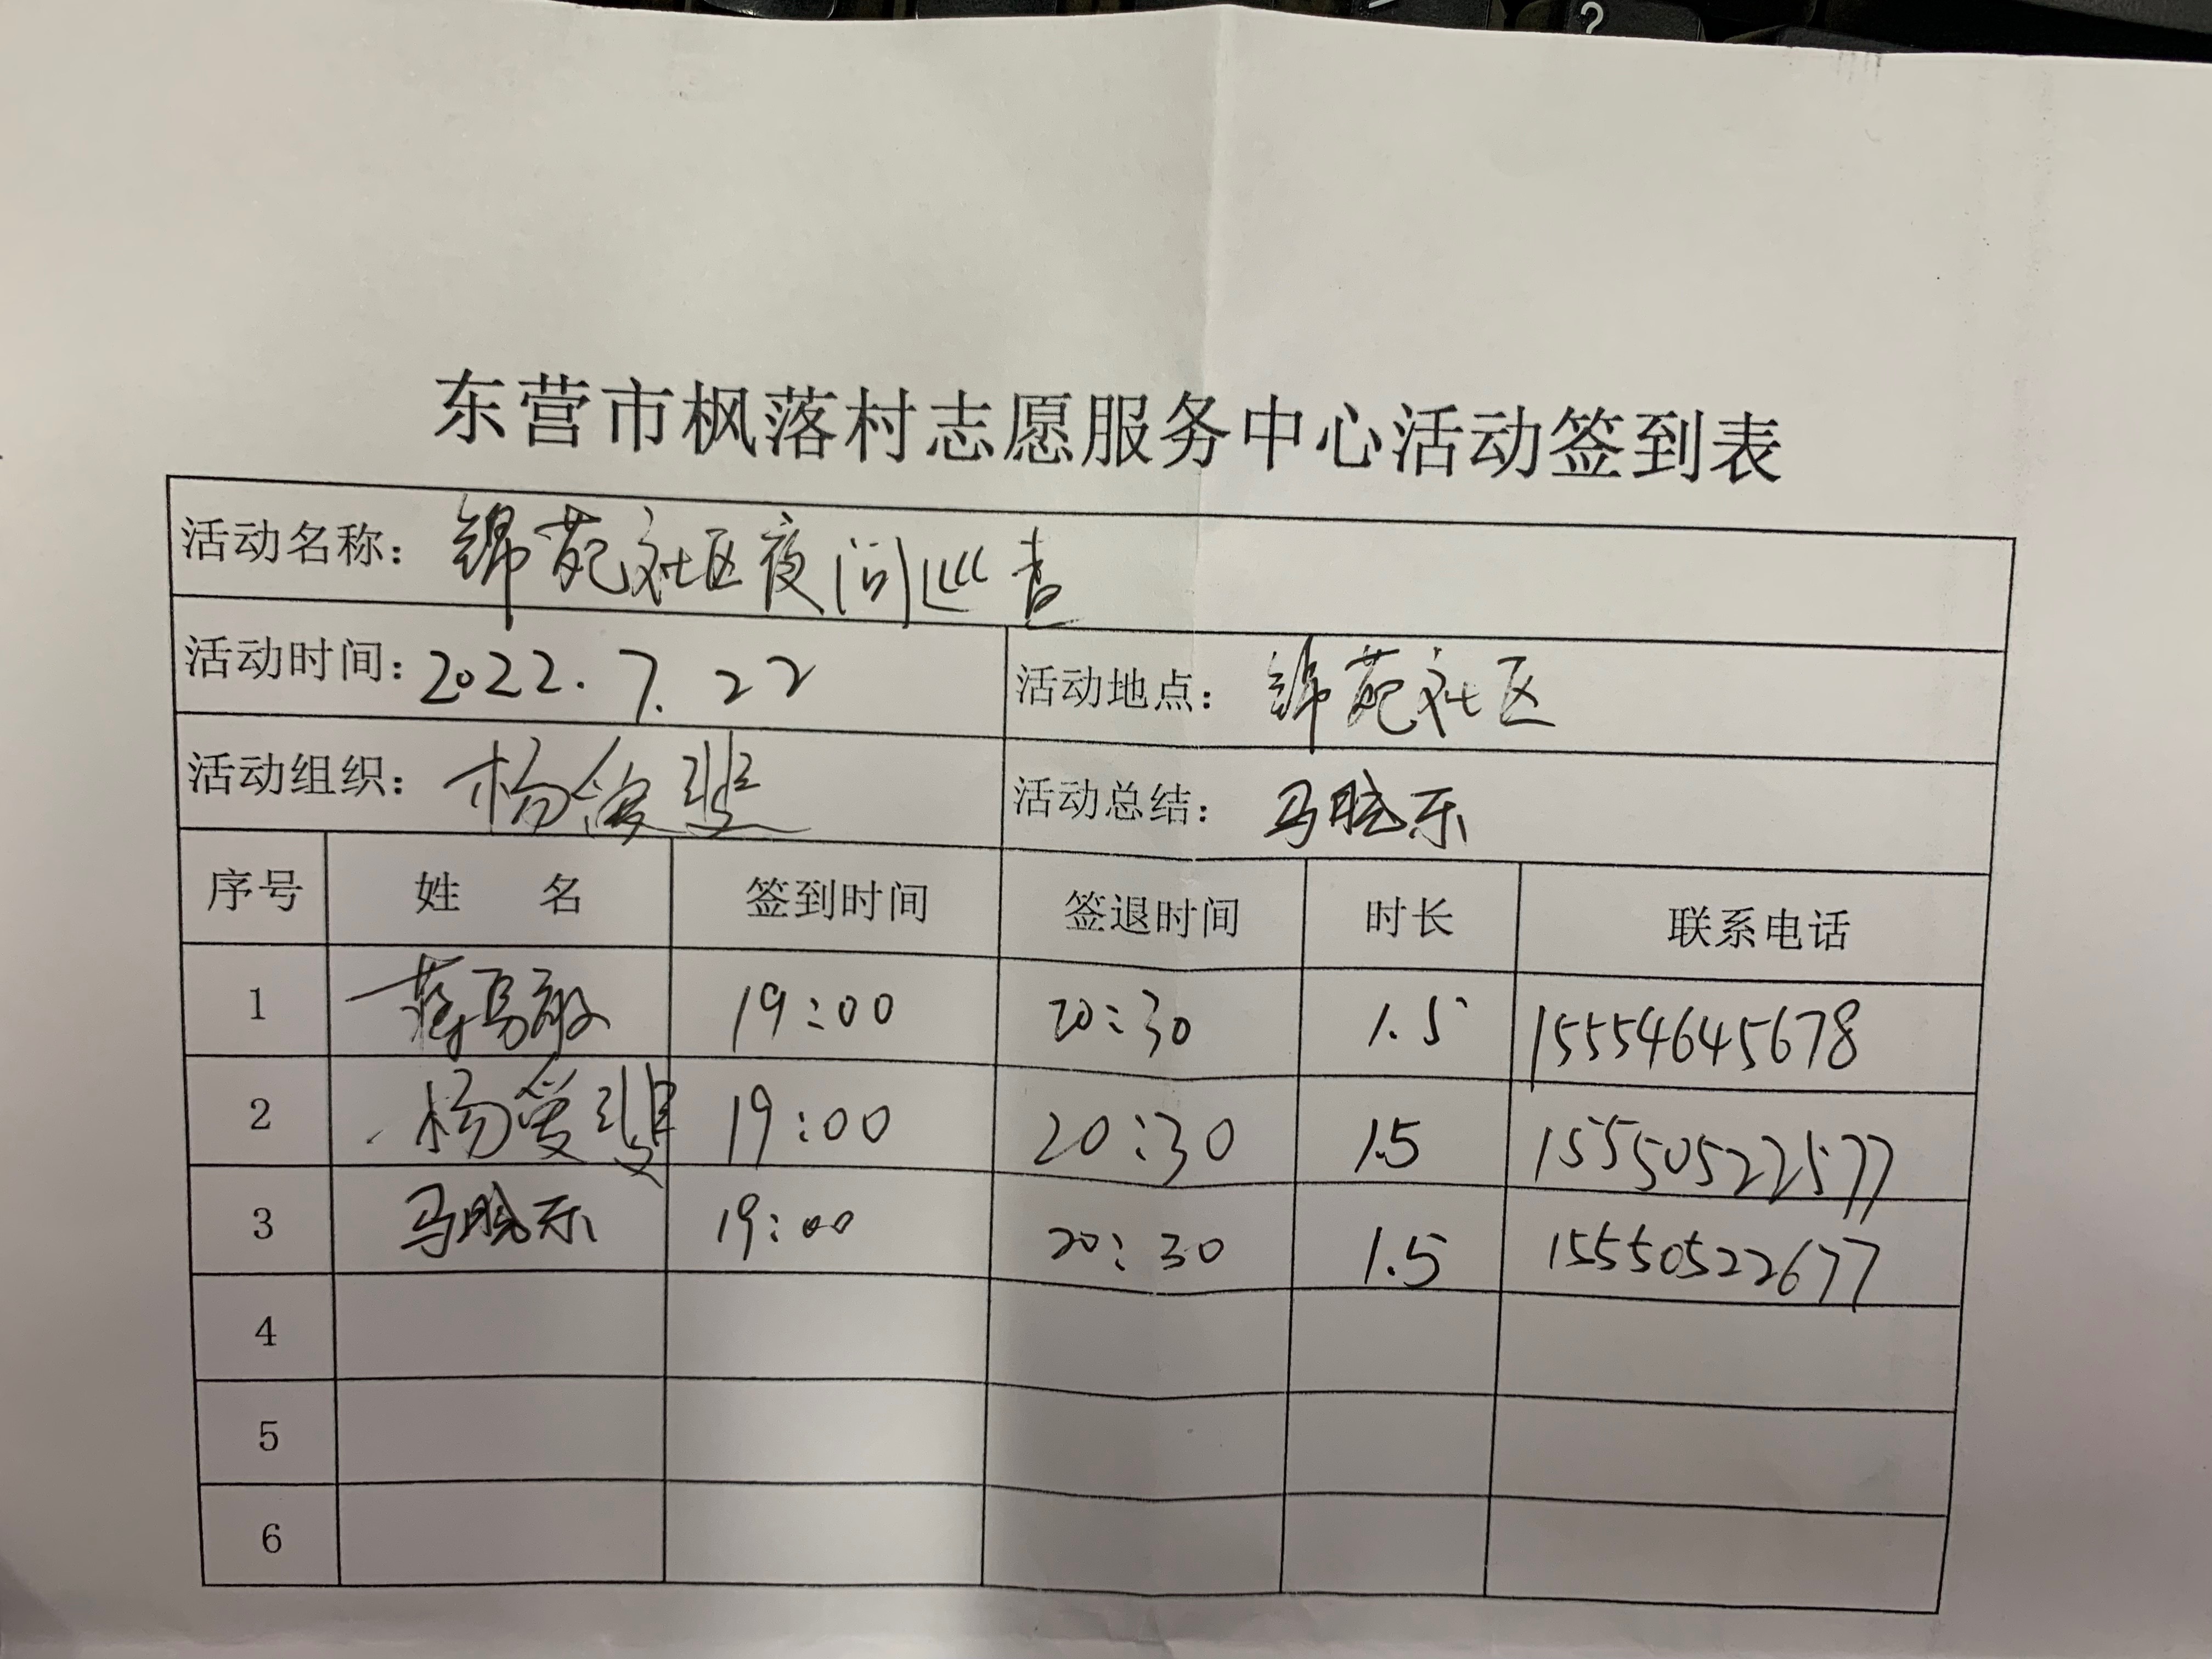 东营市枫落村志愿服务中心活动签到表
活动名称：锦苑社区夜间巡查
活动时间：2022.7.22 活动地点：锦苑社区
活动组织：杨爱 活动总结：马晓乐
序号 姓 名 签到时间 签退时间 时长 联系电话
1 敏 19:00 20:30 1.5 15554645678
2 杨爱 19:00 20:30 1.5 15550522577
3 马晓乐 19:00 20:30 1.5 15550522677
4
5
6
?